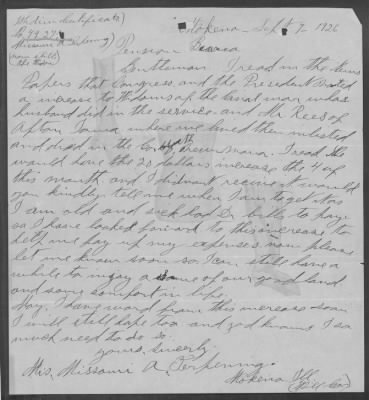 Widow Certificate)
Missouri A Terpening)
Mokena - Sept 9 1926
Pension
Gentleman I read in the News
Papers that Congress and the President
a increase to Widows of the Civil war whose
husband died in the service. and Mr Rees of
Afton Iowa where we lived then enlisted
and died in the army
would have the 20 dollars increase the 4 of
this month and I didnant recieve it would
you kindly tell me when I am to get it as
I am old and sick had Dr bills to pay.
so I have looked forward to this increase to
help me pay up my expenses now please
let me know soon so I can still have a
while to injoy a some of our good land
and some comfort in life.
May I have word from this increase soon
I will still hope too and god knows I so
much need to do so.
yours, sincerly.
Mis. Missouri A. Terpening.
Mokena Ill.